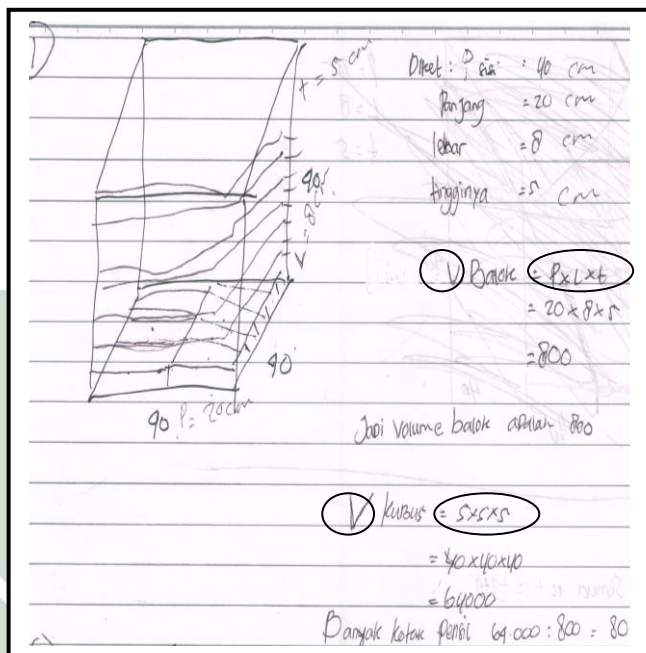 1)
t = 5 cm
Diket : P sisi = 40 cm
Panjang = 20 cm
lebar = 8 cm
tingginya = 5 cm
40
V Balok = P x L x t
= 20 x 8 x 5
= 800
40
40 P = 20 cm
Jadi Volume balok adalah 800
V kubus = s x s x s
= 40 x 40 x 40
= 64000
Banyak kotak pensil 64.000 : 800 = 80